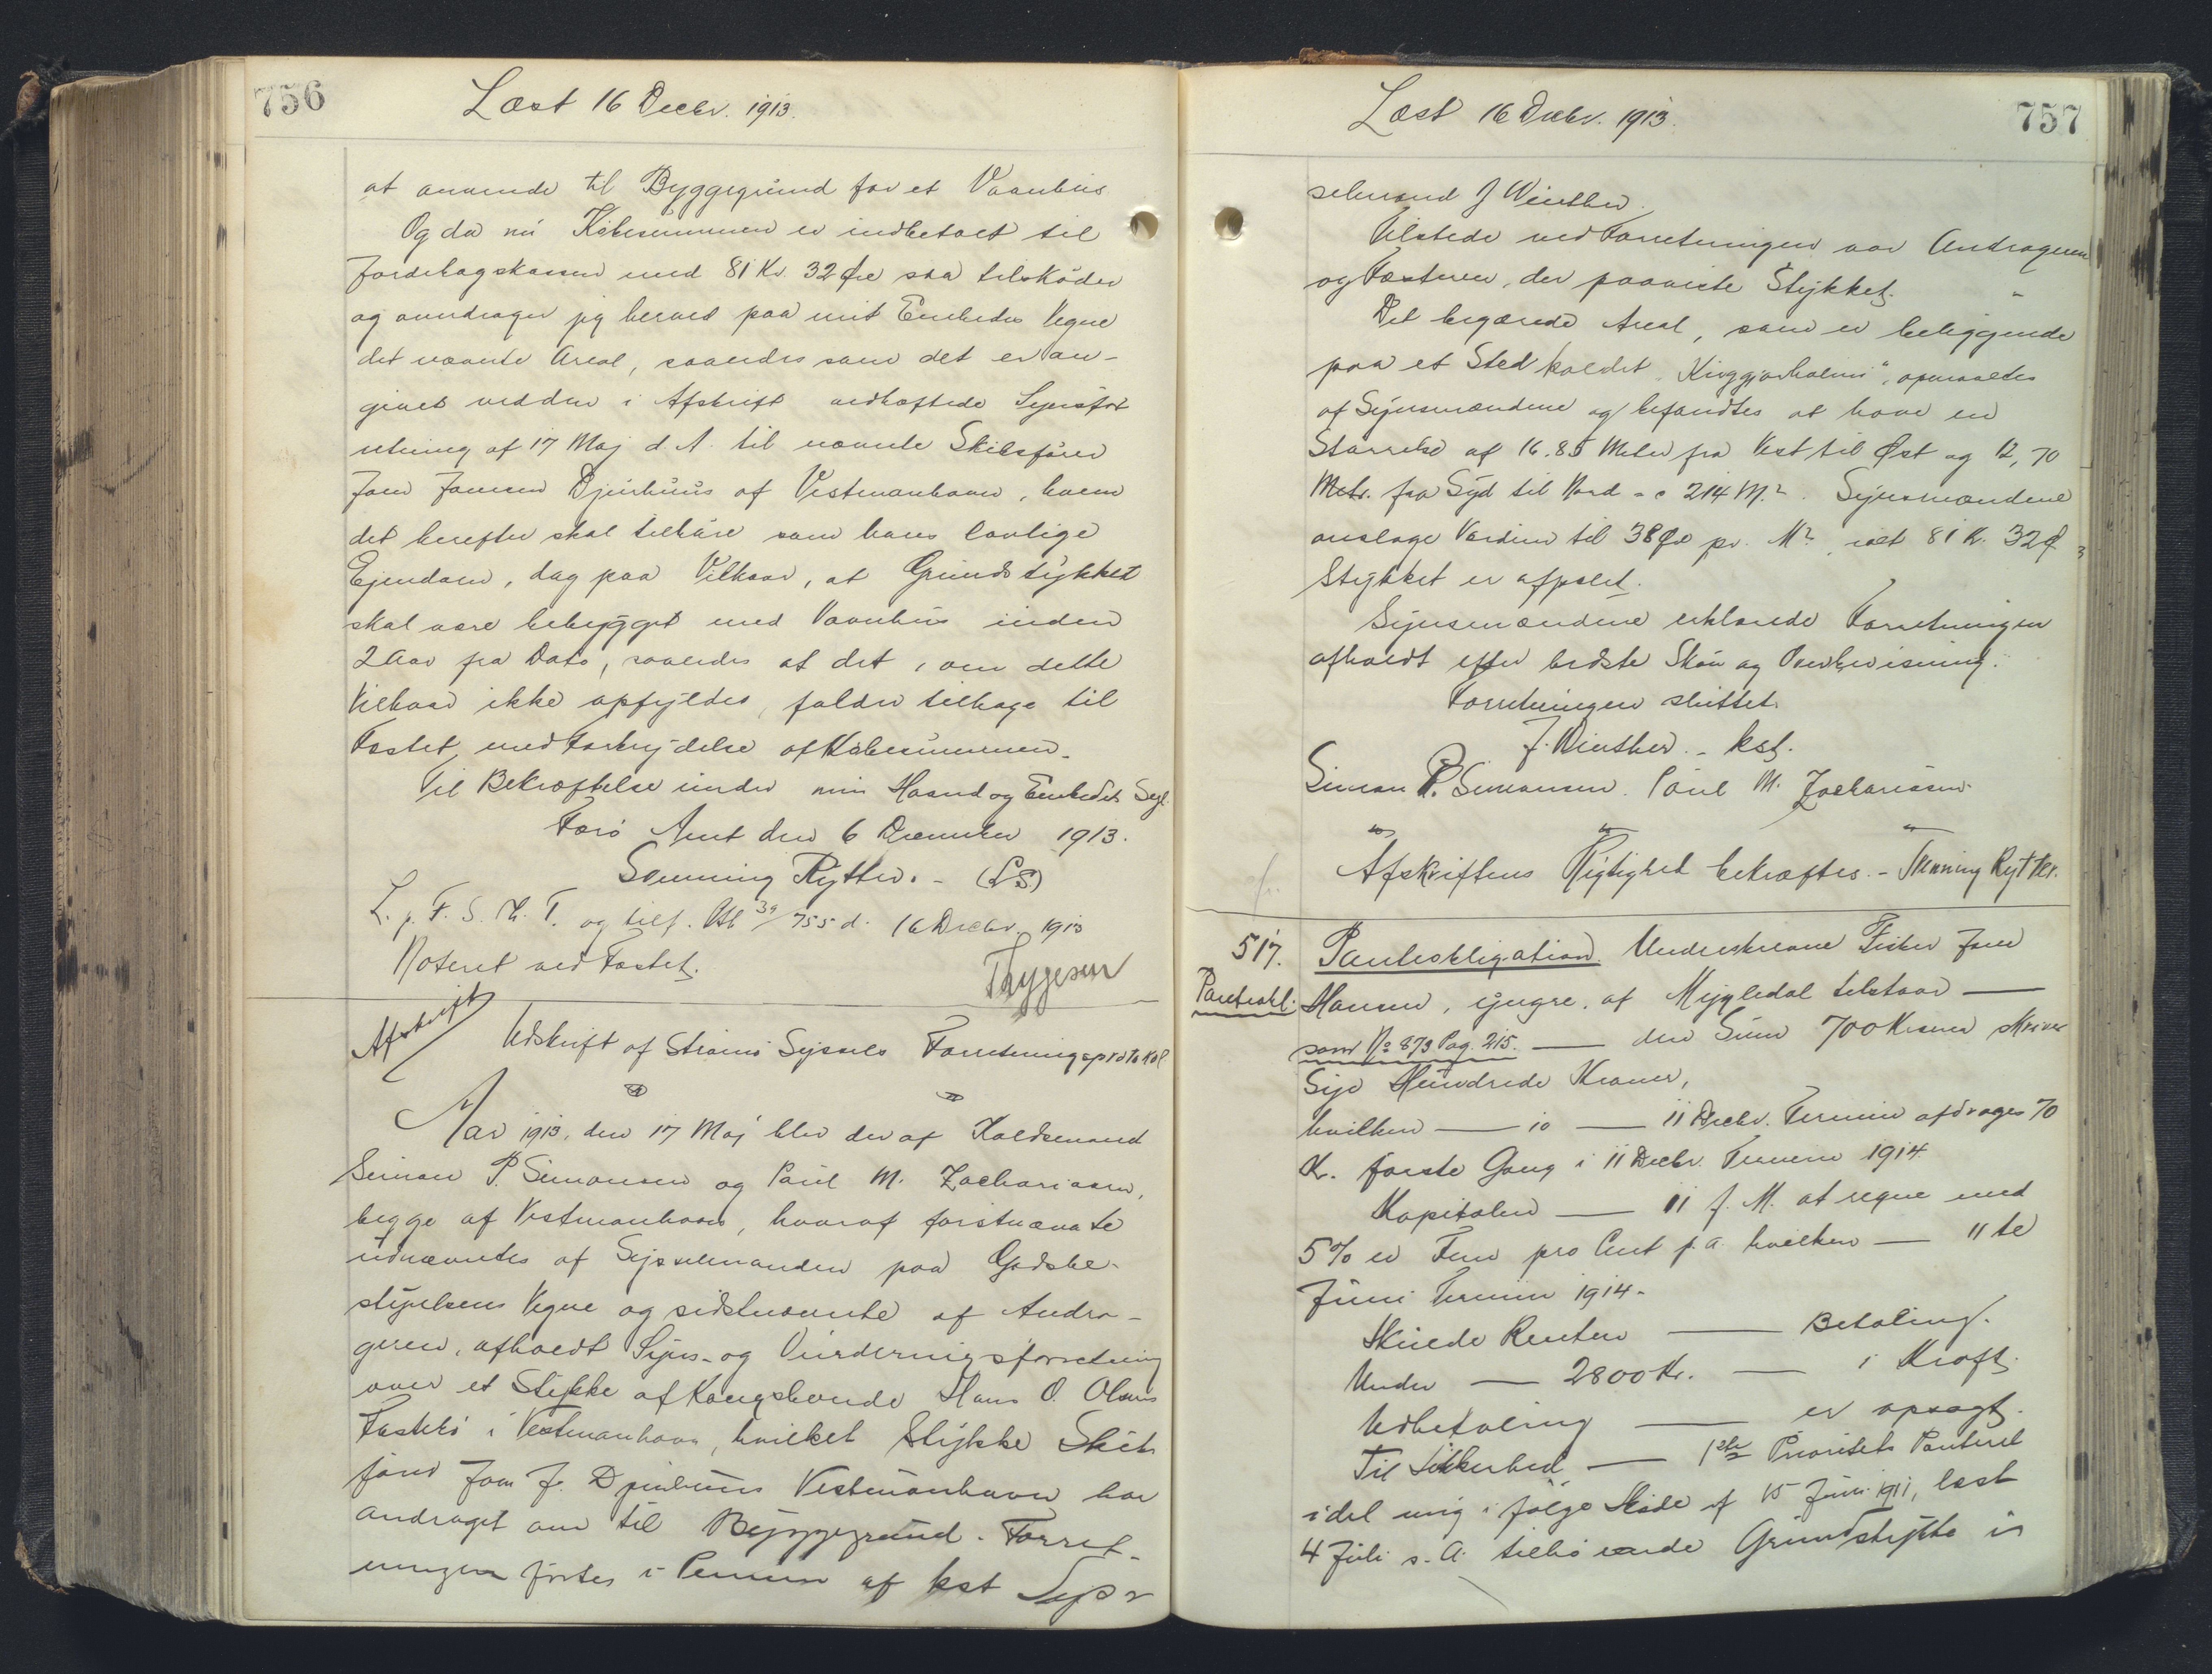 756
Læst 16 Decbr. 1913.
at anvende til Byggegrund for et Vaanhus.
Og da nu Købesummen er indbetalt til
Jordebogskassen med 81 Kr. 32 Øre saa tilskøder
og overdrager jeg herved paa mit Embedes Vegne
det nævnte Areal, saaledes som det er an-
givet i Afskrift vedhæftede Synsfor
retning af 17 Maj d. A. til nævnte Skibsfører
Joen Joensen Djurhuus af Vestmanhavn, hvem
det herefter skal tilhøre som hans lovlige
Ejendom, dog paa Vilkaar, at Grundstykket
skal være bebygget med Vaanhus inden
2 Aar fra Dato, saaledes at det, om dette
Vilkaar ikke opfyldes, falder tilbage til
Fæstet, med Fortrydelse af Købesummen.
Til Bekræftelse under min Haand og Embedets Segl.
Færø Amt den 6 December 1913.
Svenning Rytter. - (LS)
L. p. F. S. Th. T. og tilf. Atb 39/755 d. 16 Decbr. 1913
Noteret ved Fæstet.
Thygesen
Afskrift
Udskrift af Strømø Syssels Forretningsprotokol
Aar 1913, den 17 Maj blev der af Haldsmænd
Simon P. Simonsen og Poul M. Zachariasen,
begge af Vestmanhavn, hvoraf førstnævnte
udnævntes af Sysselmanden paa Godsbe-
styrelsens Vegne og sidstnævnte af Andra-
geren, afholdt Syns- og Vurderingsforretning
over et Stykke af Kongsbonde Hans O. Olsens
Fæstejord i Vestmanhavn, hvilket Stykke Skibs
fører Joen J. Djurhuus Vestmanhavn har
andraget om til Byggegrund. Forret-
ningen førtes i Pennen af kst Sys
757
Læst 16 Decbr. 1913.
selmand J Winther.
Tilstede ved Forretningen var Andrageren
og Fæsteren, der paaviste Stykket.
Det begærede Areal, som er beliggende
paa et Sted kaldet "Kirggjarhalmi", opmaaltes
af Synsmændene og befandtes at have en
Størrelse af 16.85 Meter fra Vest til Øst og 12,70
Metr. fra Syd til Nord = c 214 M.². Synsmændene
anslage Værdien til 38 Øre pr. M², ialt 81 Kr. 32 Ø
Stykket er afpælet.
Synsmændene erklærede Forretningen
afholdt efter bedste Skøn og Overbevisning.
Forretningen sluttet.
J. Winther. - kst.
Simon P. Simonsen. Poul M. Zachariasen.
Afskriftens Rigtighed bekræftes. - Svenning Rytter.
517.
Pantobl.
Panteobligation. Underskrevne Fisker Joen
Hansen, yngre, af Mygledal tilstaar —
som No 873 Pag. 215. — den Sum 700 Kroner skriver
Syv Hundrede Kroner,
hvilken — io — 11 Decbr. Termin afdrages 70
Kr. første Gang i 11 Decbr. Termin 1914.
Kapitalen — 11 f. M. at regne med
5% er Fem pro Cent p. a. hvilken — 11 te
Juni Termin 1914.
Skulde Renten — Betaling.
Under — 2800 Kr. — i Kraft.
Udbetaling — er opsagt.
Til Sikkerhed — 1ste Prioritets Panteret
i det mig i følge Skøde af 15 Juni 1911, læst
4 Juli s. A. tilhørende Grundstykke in